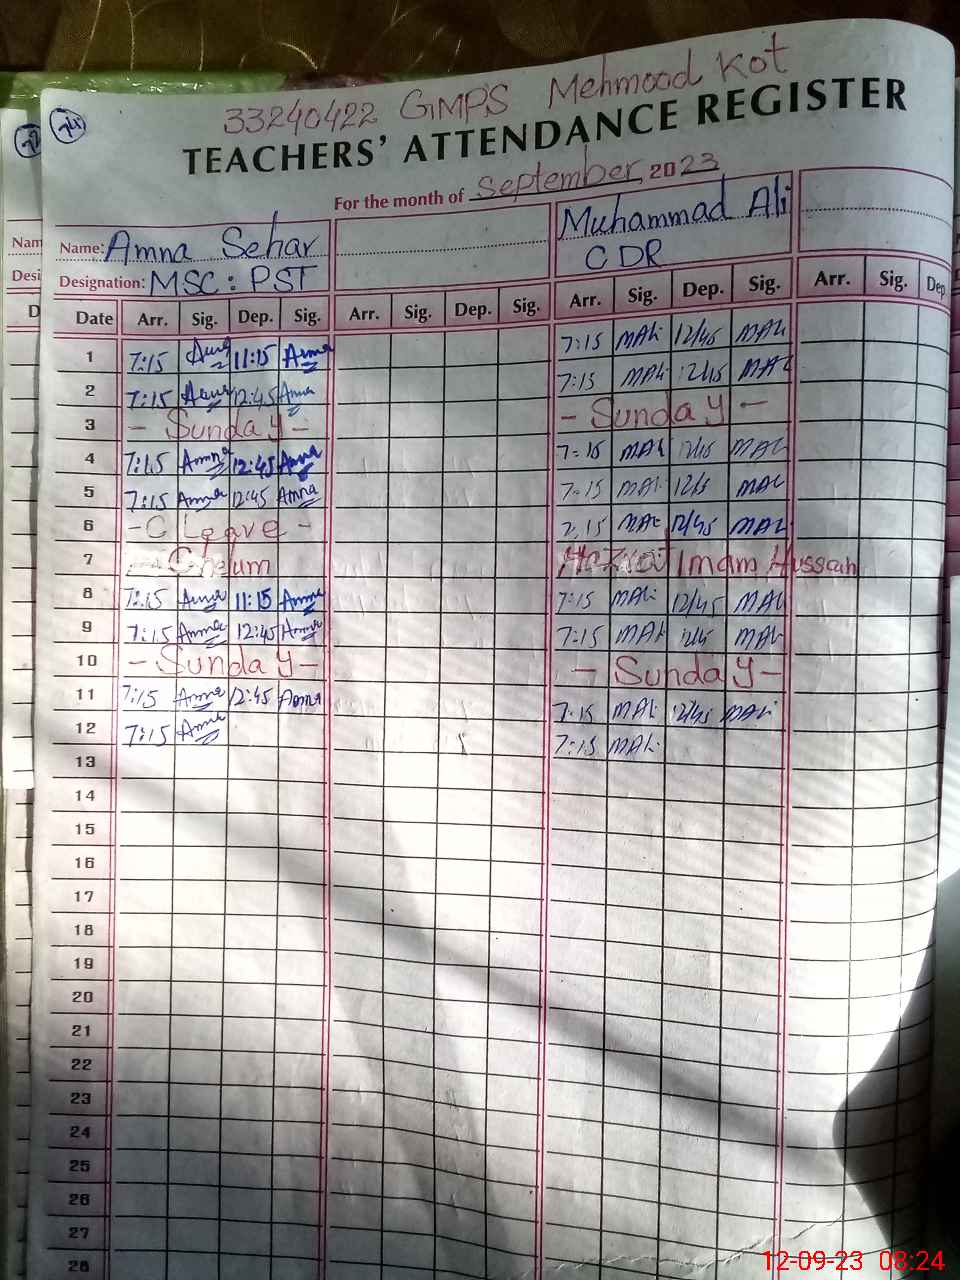 33240422 GMPS Mehmood Kot
TEACHERS' ATTENDANCE REGISTER
For the month of September 2023
Name: Amna Sehar Muhammad Ali
Designation: MSC: PST CDR
Date Arr. Sig. Dep. Sig. Arr. Sig. Dep. Sig. Arr. Sig. Dep. Sig. Arr. Sig. Dep.
1 7:15 11:15 Amna 7:15 MAli 12/45 MAli
2 7:15 12:45 Amna 7:15 MAli 12/45 MAli
3 - Sunday - - Sunday -
4 7:15 Amna 12:45 Amna 7:15 MAli 12/45 MAli
5 7:15 Amna 12:45 Amna 7:15 MAli MAli
6 - C Leave - 7:15 MAli 12/45 MAli
7 Chelum Hazrat Imam Hussain
8 7:15 Amna 11:15 Amna 7:15 MAli 12/45 MAli
9 7:15 Amna 12:45 Amna 7:15 MAli MAli
10 - Sunday - - Sunday -
11 7:15 Amna 12:45 Amna 7:15 MAli 12/45 MAli
12 7:15 Amna 7:15 MAli
13
14
15
16
17
18
19
20
21
22
23
24
25
26
27
28
12-09-23 08:24